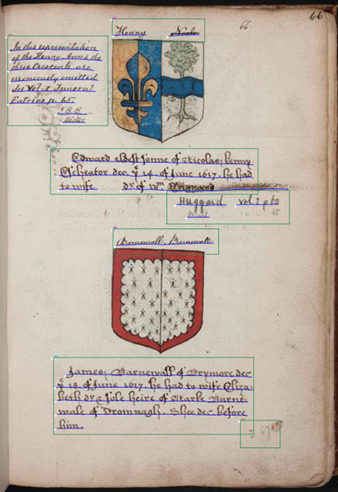 66
66
Henry
In this representation
of the Henry Arms the
three Crescents are
erroneously omitted
See Vol. 8 Funeral
Entries p. 65.
Ulster
Edward
sonne of Nicolas Henry
Escheator dec. yᵉ 14. of June 1617. he had
to wife dr of Wm.
Huggard Vol I p 60
Barnewall, Barnewale
James Barnewall of Brymore dec
yᵉ 18. of June 1617. he had to wife Eliza-
beth dr & sole heire of Marke Barne-
wale of Dromnagh. Shee dec before
him.